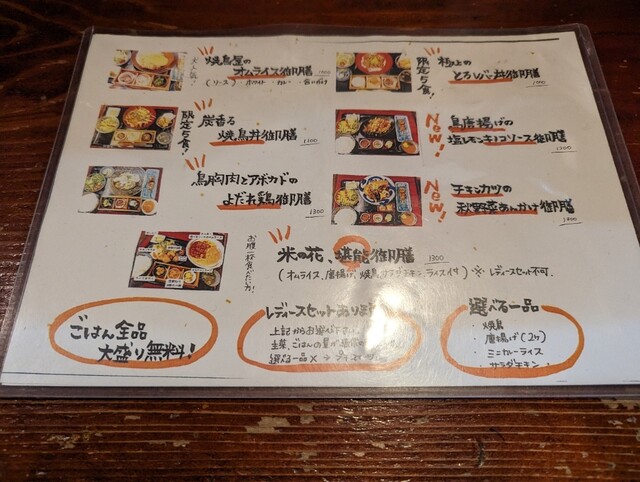 焼鳥屋の
オムライス御膳
極上の
とろレバー丼御膳
限定5食!
炭香る
焼鳥丼御膳 1300
限定5食!
New!
鳥唐揚げの
塩レモンキノコソース御膳
1300
鳥胸肉とアボカドの
よだれ鶏御膳 1300
New!
チキンカツの
秋野菜あんかけ御膳
お腹一杯食べたい方!
米の花、堪能御膳 1300
(オムライス、唐揚げ、焼鳥、サラダチキン、ライス付) ※レディースセット不可.
ごはん全品
大盛り無料!
レディースセットあります
上記からお選び下さい
主菜、ごはんの量が
選べる一品 ×
選べる一品
・焼鳥
・唐揚げ(2ケ)
・ミニカレーライス
・サラダチキン